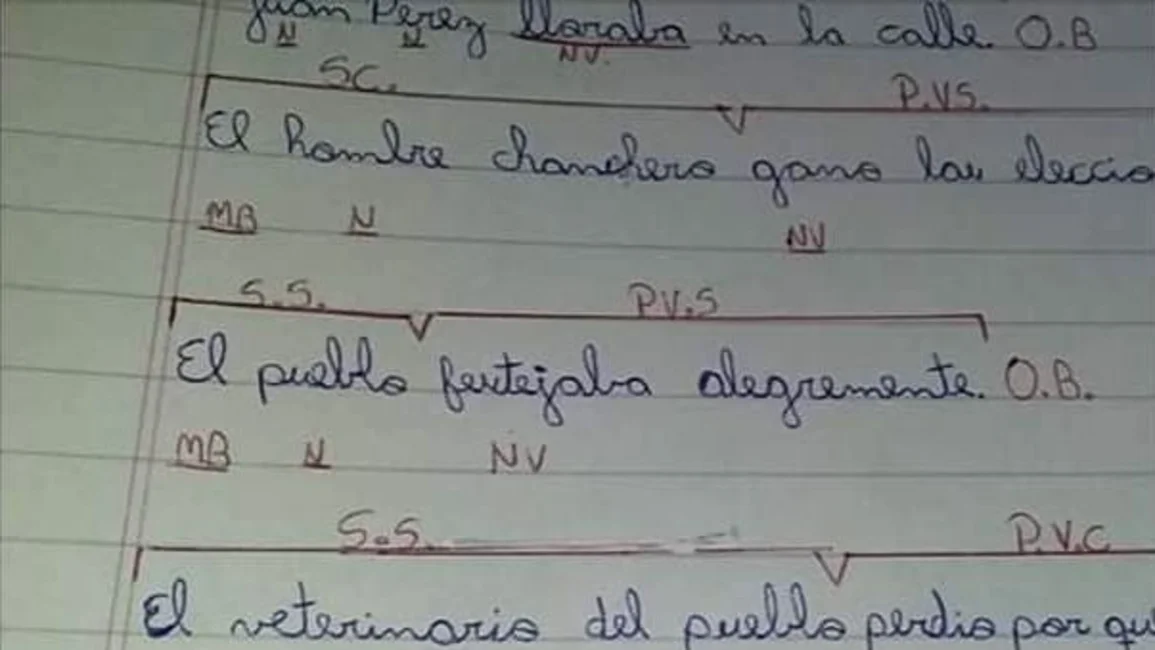 Juan Perez lloraba en la calle. O.B
N N NV.
SC. P.VS.
El hombre chanchero gano las eleccio
MB N NV
S.S. P.V.S
El pueblo festejaba alegremente. O.B.
MB N NV
S.S. P.V.C
El veterinario del pueblo perdio por qu